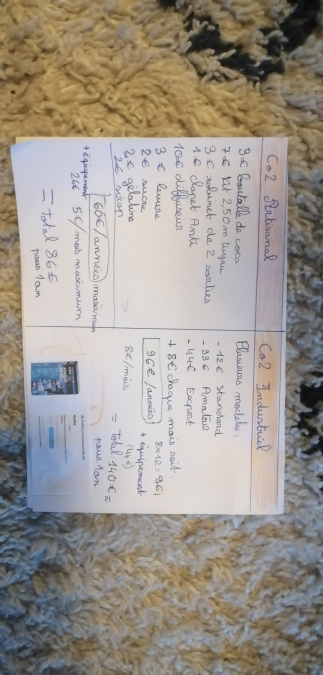 Co2 Artisanal
3€ bouteille de coca
7€ Kit 2,50m tuyau
3€ robinet de 2 sorties
1€ clapet Anti
10€ diffuseur
3€ levure
2€ sucre
2€ gélatine
60€/années maximum
5€/mois maximum
+ équipement
26€
= Total 86€
pour 1an
Co2 Industriel
Plusieurs modèles:
- 12€ Standard
- 33€ Amateur
- 44€ Expert
+ 8€ chaque mois soit
8x12=96€
96€/années
+ équipement
(44€)
8€/mois
= Total 140€
pour 1an